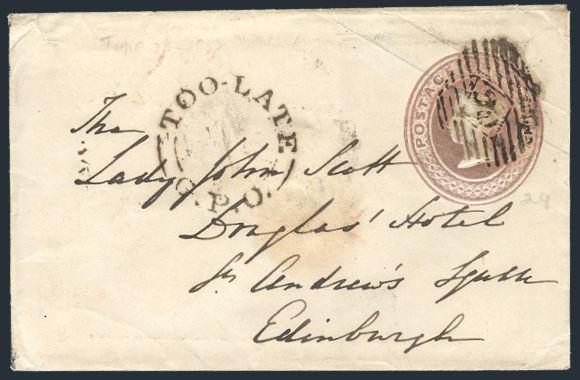 TOO-LATE
G.P.O.
POSTAG
The
Lady John Scott
Douglas' Hotel
St Andrew's Square
Edinburgh
29